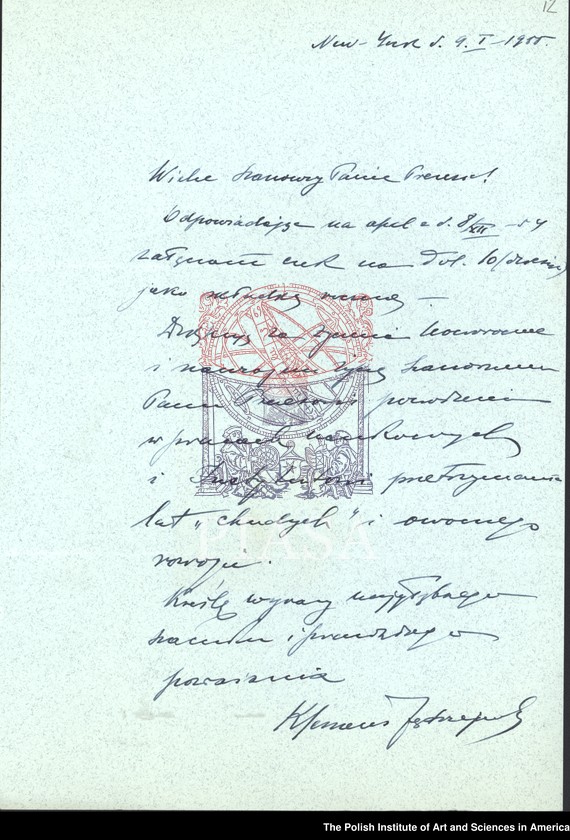 12
New-York d. 9. I - 1955.
Wielce Szanowny Panie Prezesie!
Odpowiadając na apel z d. 8/XII - 54
załączam czek na Dol. 10 (dziesięć)
jako składkę roczną —
Dziękuję za życzenia Noworoczne
i nawzajem życzę Szanownemu
Panu Prezesowi powodzenia
w pracach naukowych
i Instytutowi przetrzymania
lat „chudych" i owocnego
rozwoju.
Kreślę wyrazy najgłębszego
szacunku i prawdziwego
poważania
Klemens
PIASA
The Polish Institute of Art and Sciences in America